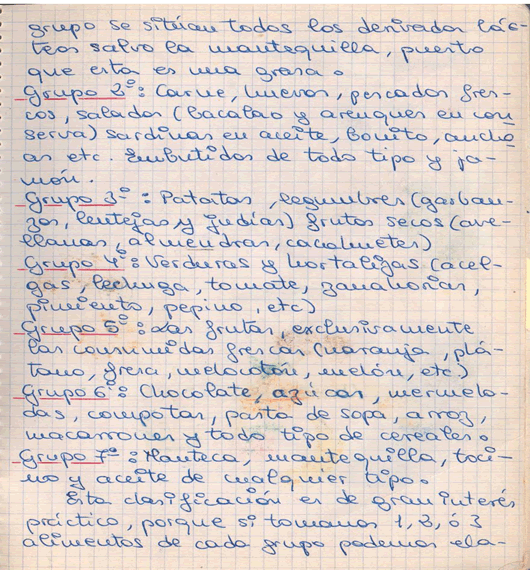 grupo se sitúan todos los derivados lác-
teos salvo la mantequilla, puesto
que esta es una grasa.
Grupo 2º: Carne, huevos, pescados fres-
cos, salados (bacalao y arenques en con
serva) sardinas en aceite, bonito, ancho
as etc. Embutidos de todo tipo y ja-
món.
Grupo 3º: Patatas, legumbres (garban-
zos, lentejas y judías) frutos secos (ave-
llanas, almendras, cacahuetes)
Grupo 4º: Verduras y hortalizas (acel-
gas, lechuga, tomate, zanahorias,
pimiento, pepino, etc)
Grupo 5º: Las frutas, exclusivamente
las consumidas frescas (naranja, plá-
tano, fresa, melocotón, melón, etc.)
Grupo 6º: Chocolate, azúcar, mermela-
das, compotas, pasta de sopa, arroz,
macarrones y todo tipo de cereales.
Grupo 7º: Manteca, mantequilla, toci-
no y aceite de cualquier tipo.
Esta clasificación es de gran interés
práctico, porque si tomamos 1, 2, ó 3
alimentos de cada grupo podemos ela-